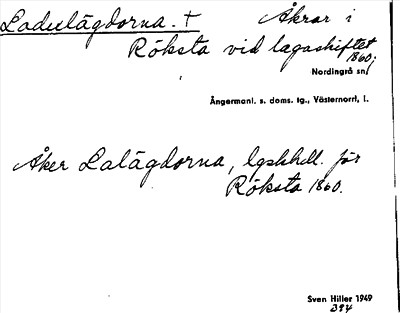 Ladulägdorna. † Åkrar i
Röksta vid lagaskiftet
1860,
Nordingrå sn,
Ångermanl. s. doms. tg., Västernorrl, l.
Åker Lalägdorna, lgskhdl. för
Röksta 1860.
Sven Hiller 1949
394